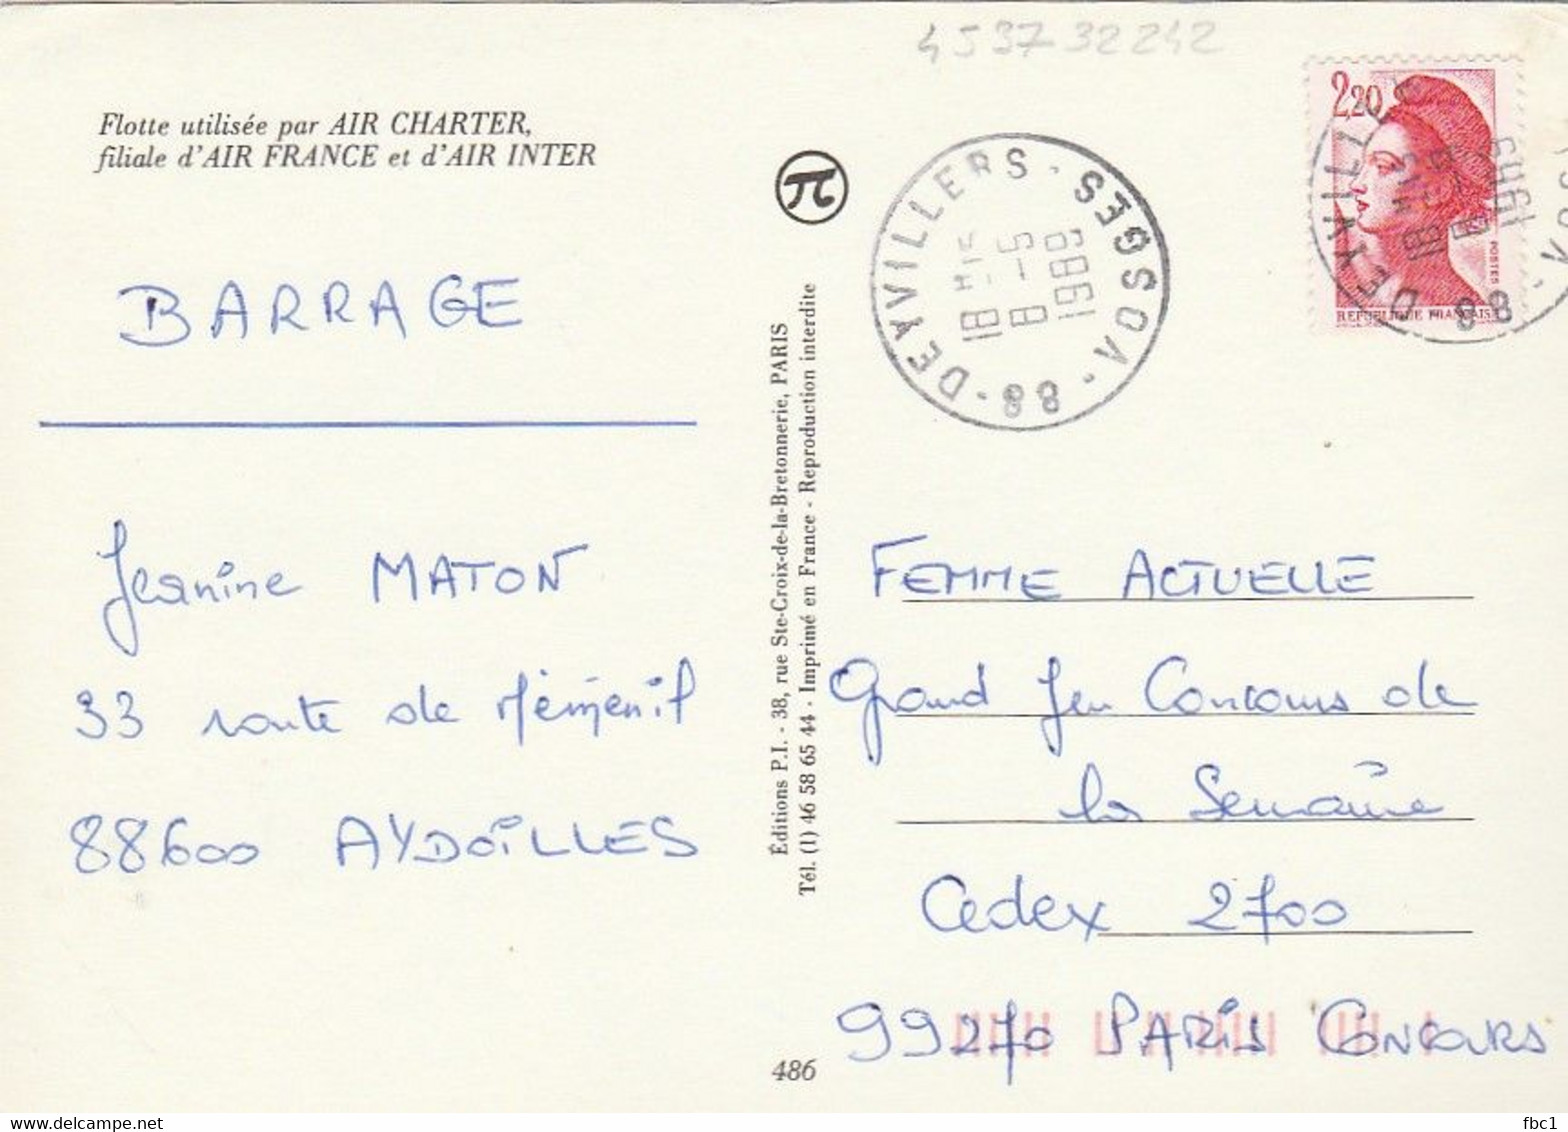 4537 32242
Flotte utilisée par AIR CHARTER,
filiale d'AIR FRANCE et d'AIR INTER
BARRAGE
Jeanine MATON
33 route de Méménil
88600 AYDOILLES
Éditions P.I. - 38, rue Ste-Croix-de-la-Bretonnerie, PARIS
Tél. (1) 46 58 65 44 - Imprimé en France - Reproduction interdite
486
DEYVILLERS - VOSGES - 88 -
18 H 15
8 - 5
1989
2,20
POSTES
REPUBLIQUE FRANÇAISE
DEYVILL
VOS
88
FEMME ACTUELLE
Grand Jeu Concours de
la Semaine
Cedex 2700
99270 PARIS CONCOURS
fbc1